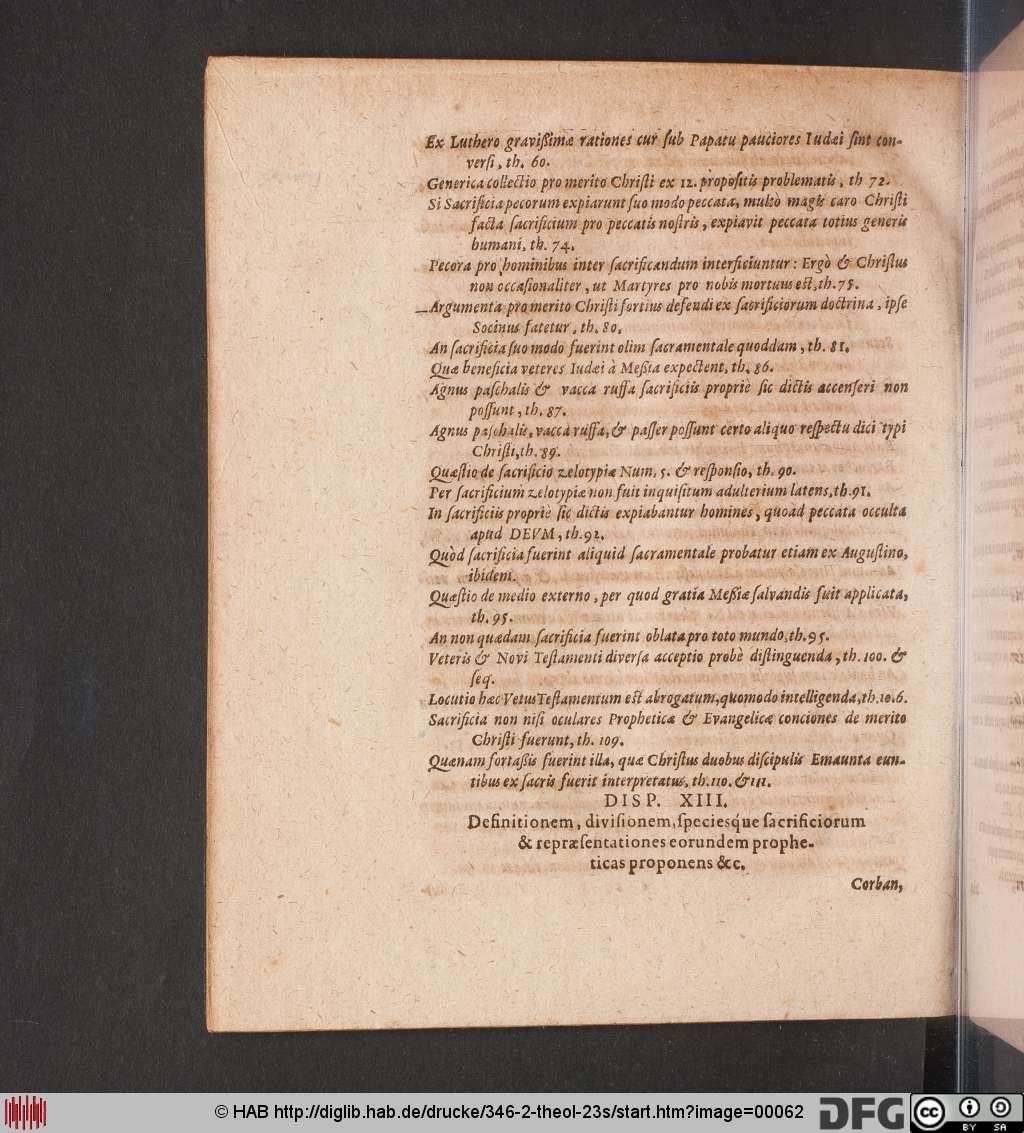 Ex Luthero gravißimæ rationes cur ſub Papatu pauciores Iudæi ſint con-
verſi, th. 60.
Generica collectio pro merito Chriſti ex 12. propoſitis problematis, th 72.
Si Sacrificia pecorum expiarunt ſuo modo peccata, multò magis caro Chriſti
facta ſacrificium pro peccatis noſtris, expiavit peccata totius generis
humani, th. 74.
Pecora pro hominibus inter ſacrificandum interficiuntur: Ergò & Chriſtus
non occaſionaliter, ut Martyres pro nobis mortuus eſt, th. 75.
Argumenta pro merito Chriſti fortius defendi ex ſacrificiorum doctrina, ipſe
Socinus fatetur, th. 80.
An ſacrificia ſuo modo fuerint olim ſacramentale quoddam, th. 81.
Quæ beneficia veteres Iudæi à Meßia expectent, th. 86.
Agnus paſchalis & vacca ruffa ſacrificiis propriè ſic dictis accenſeri non
poſſunt, th. 87.
Agnus paſchalis, vacca ruffa, & paſſer poſſunt certo aliquo reſpectu dici typi
Chriſti, th. 89.
Quæſtio de ſacrificio zelotypiæ Num. 5. & reſponſio, th. 90.
Per ſacrificium zelotypiæ non fuit inquiſitum adulterium latens, th. 91.
In ſacrificiis propriè ſic dictis expiabantur homines, quoad peccata occulta
apud DEVM, th. 92.
Quòd ſacrificia fuerint aliquid ſacramentale probatur etiam ex Auguſtino,
ibidem.
Quæſtio de medio externo, per quod gratia Meßiæ ſalvandis fuit applicata,
th. 95.
An non quædam ſacrificia fuerint oblata pro toto mundo, th. 95.
Veteris & Novi Teſtamenti diverſa acceptio probè diſtinguenda, th. 100. &
ſeq.
Locutio hæc Vetus Teſtamentum eſt abrogatum, quomodo intelligenda, th. 10.6.
Sacrificia non niſi oculares Propheticæ & Evangelicæ conciones de merito
Chriſti fuerunt, th. 109.
Quænam fortaßis fuerint illa, quæ Chriſtus duobus diſcipulis Emaunta eun-
tibus ex ſacris fuerit interpretatus, th. 110. & 111.
DISP. XIII.
Definitionem, diviſionem, ſpeciesque ſacrificiorum
& repræſentationes eorundem prophe-
ticas proponens &c.
Corban,
© HAB http://diglib.hab.de/drucke/346-2-theol-23s/start.htm?image=00062
DFG
cc BY SA